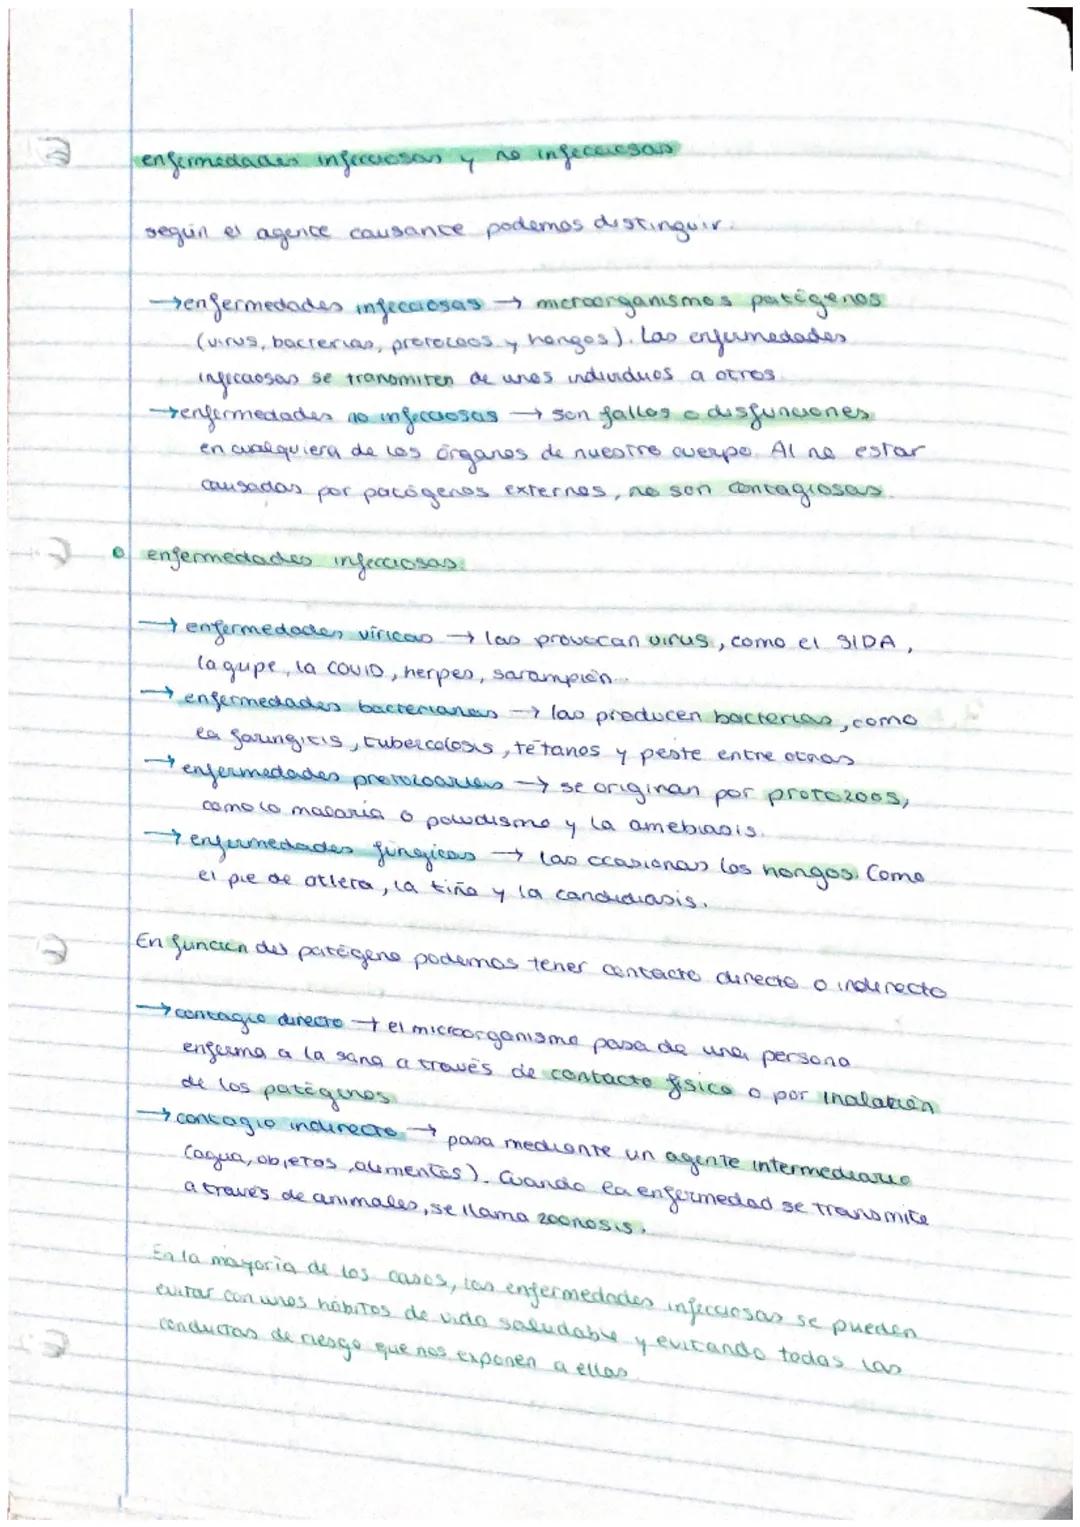 enfermedades infecciosas y no infecciosas
según el agente causante podemos distinguir.
→ enfermedades infecciosas → microorganismos patógenos
(virus, bacterias, protozoos y hongos). Las enfermedades
infecciosas se transmiten de unos individuos a otros
→ enfermedades no infecciosas → son fallos o disfunciones
en cualquiera de los órganos de nuestro cuerpo. Al no estar
causadas por patógenos externos, no son contagiosas.
enfermedades infecciosas.
→ enfermedades víricas → las provocan virus, como el SIDA,
la gripe, la COVID, herpes, sarampión...
→ enfermedades bacterianas → las producen bacterias, como
la faringitis, tubercolosis, tétanos y peste entre otras
→ enfermedades protozoarias → se originan por protozoos,
como la malaria o paludismo y la amebiasis.
→ enfermedades fúngicas → las ocasionas los hongos. Como
el pie de atleta, la tiña y la candidiasis.
En función del patógeno podemos tener contacto directo o indirecto
→ contagio directo → el microorganismo pasa de una persona
enferma a la sana a través de contacto físico o por inalación
de los patógenos
→ contagio indirecto → pasa mediante un agente intermediario
(agua, objetos, alimentos). Cuando la enfermedad se transmite
a través de animales, se llama zoonosis.
En la mayoría de los casos, las enfermedades infecciosas se pueden
evitar con unos hábitos de vida saludable y evitando todas las
conductas de riesgo que nos exponen a ellas